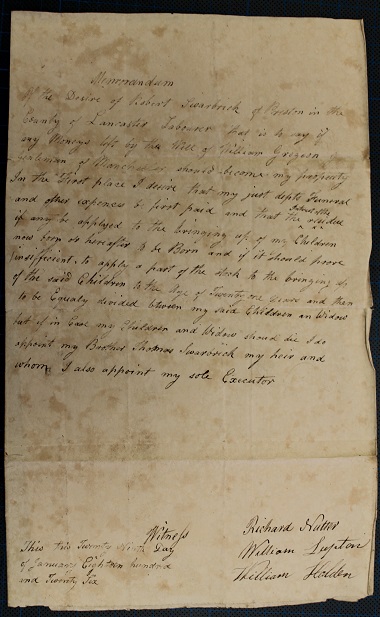 Memorandum
Of the Desire of Robert Swarbrick of Preston in the
County of Lancaster Labourer that is to say if
any Moneys left by the Will of William Gregson
Gentleman of Manchester should become my property
In the First place I desire that my just depts Funeral
and other expences be first paid and that the Interest of the residue
if any be applyed to the bringing up of my Children
now born or hereafter to be Born and if it should prove
insufficient to apply a part of the stock to the bringing up
of the said Children to the Age of Twenty one Years and then
to be Equaly divided between my said Children an Widow
but if in Case my Children and Widow should die I do
appoint my Brother Thomas Swarbrick my heir and
whom I also appoint my sole Executor
Witness
This the Twenty Day
of January Eighteen hundred
and Twenty Six
Richard
William Lupton
William Holden